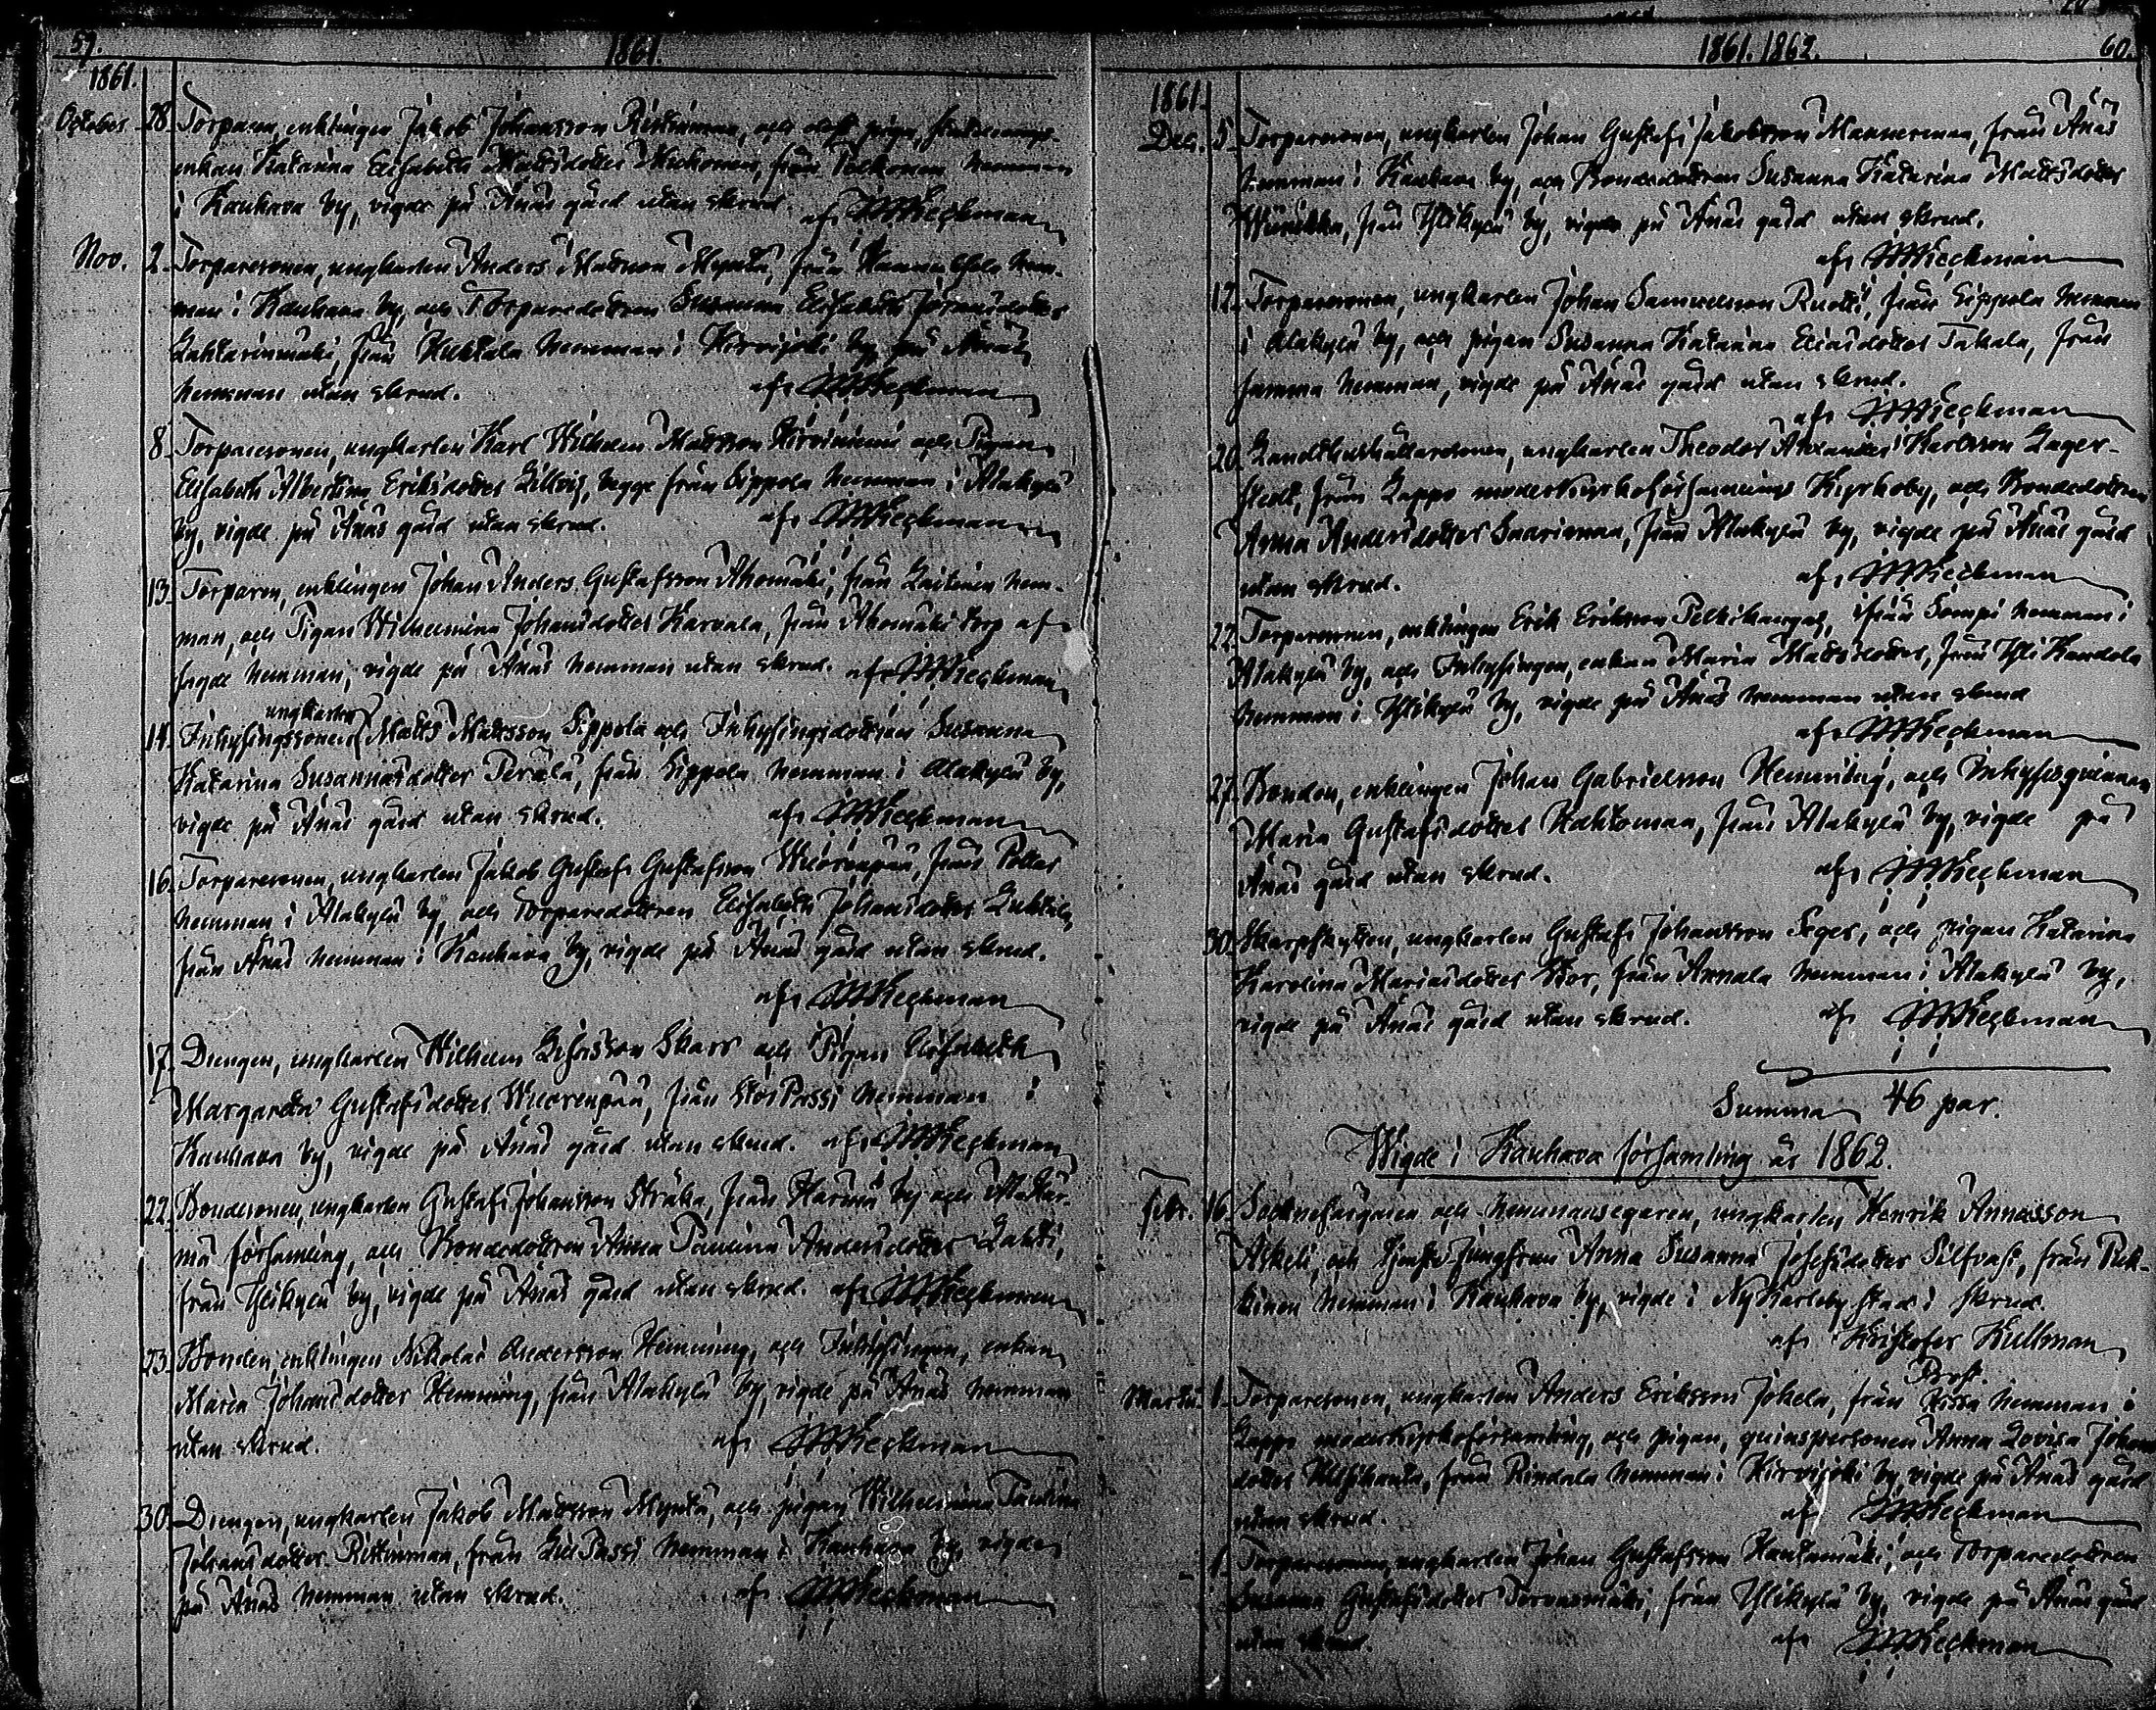 59.
1861.
1861.
October 28. Torparen, enklingen Jakob Johansson Rintinman, och pigan,
enkan Katarina Elisabeth Mattsdotter från Pelkonen hemman
i Kauhava by, vigde på Ånäs gård utan skrud. af IMWieckman
Nov. 2. Torparesonen, ungkarlen Anders Matsson Myntä, från hem-
man i Kauhava by, och Torparedottren Susanna Elisabeth
Lahtarinmäki, från Huhtala hemman i Kirvijoki by, på Ånäs
hemman utan skrud. af IMWieckman
8. Torparesonen, ungkarlen Karl Wilhelm Mattsson Hirviniemi och Pigan
Elisabeth Albertina Eriksdotter Lillvis, begge från Sippola hemman i Alakylä
by, vigde på Ånäs gård utan skrud. af IMWieckman
13. Torparen, enklingen Johan Anders Gustafsson Ahomäki, från Laitinen hem-
man, och Pigan Wilhelmina Johansdotter Karvala, från Ahomäki torp af
sagde hemman, vigde på Ånäs hemman utan skrud. af IMWieckman
ungkarlen
14. Inhysingssonen Matts Mattsson Sippola och Inhysingsdottren Susanna
Katarina Susannasdotter Perälä, från Sippola hemman i Alakylä by,
vigde på Ånäs gård utan skrud. af IMWieckman
16. Torparesonen, ungkarlen Jakob Gustaf Gustafsson Wuorenpää, från Pollas
hemman i Alakylä by, och Torparedottren Elisabeth Johansdotter Luhtala,
från Ånäs hemman i Kauhava by, vigde på Ånäs gård utan skrud.
af IMWieckman
17. Drengen, ungkarlen Wilhelm Skars och Pigan Elisabeth
Margareta Gustafsdotter Wuorenpää, från Stor Passi hemman i
Kauhava by, vigde på Ånäs gård utan skrud. af IMWieckman
22. Bondesonen, ungkarlen Gustaf Johansson Sträka, från Härmä by och Alahär-
mä församling, och Bondedottren Anna Paulina Andersdotter Lahti,
från Ylikylä by, vigde på Ånäs gård utan skrud. af IMWieckman
23. Bonden, enklingen Nikolai Andersson Hemming, och Inhysingen, enkan
Maria Johansdotter Hemming, från Alakylä by, vigde på Ånäs hemman
utan skrud. af IMWieckman
30. Drengen, ungkarlen Jakob Mattsson Myntä, och pigan Wilhelmina Paulina
Johansdotter Rittinman, från Lill Passi hemman i Kauhava by, vigde
på Ånäs hemman utan skrud. af IMWieckman
1861. 1862.
60.
1861.
Dec. 5. Torparesonen, ungkarlen Johan Gustaf Jakobsson Mannerman, från Ånäs
hemman i Kauhava by, och Bondedottren Susanna Katarina Mattsdotter
från Ylikylä by, vigde på Ånäs gård utan skrud.
af IMWieckman
12. Torparesonen, ungkarlen Johan Samuelsson Ruotti, från Sippola hemman
i Alakylä by, och pigan Susanna Katarina Eliasdotter Takala, från
samma hemman, vigde på Ånäs gård utan skrud.
af IMWieckman
20. Landthushållaresonen, ungkarlen Theodor Alexander Karlsson Lager-
stedt, från Lappo moderkyrkoförsamlings Kyrkoby, och Bondedottren
Anna Andersdotter Saarimaa, från Alakylä by, vigde på Ånäs gård
utan skrud. af IMWieckman
22. Torparesonen, enklingen Erik Eriksson Peltikangas, ifrån Sompi hemman i
Alakylä by, och Inhysingen, enkan Maria Mattsdotter, från Yli Kandola
hemman i Ylikylä by, vigde på Ånäs hemman utan skrud
af IMWieckman
27. Bonden, enklingen Johan Gabrielsson Hemming, och Inhysesqvinnan
Maria Gustafsdotter Kahtomaa, från Alakylä by, vigde på
Ånäs gård utan skrud. af IMWieckman
30. Skarpskytten, ungkarlen Gustaf Johansson Seger, och pigan Katarina
Karolina Mariasdotter Stor, från Annala hemman i Alakylä by,
vigde på Ånäs gård utan skrud. af IMWieckman
Summa 46 par.
Wigde i Kauhava församling år 1862.
febr. 16. Socknefärgaren och hemmansegaren, ungkarlen Henrik Annasson
Askeli, och Jungfrun Anna Susanna Josefsdotter Silfvast, från Puk-
kinen hemman i Kauhava by, vigde i Ny Karleby stad i skrud.
af Kristofer Kullman
Prost.
Martii 1. Torparesonen, ungkarlen Anders Eriksson Jokela, från Rissa hemman i
Lappo moderkyrkoförsamling, och pigan, qvinspersonen Anna Lovisa Johans
dotter från Rindala hemman i Kirvijoki by, vigde på Ånäs gård
utan skrud. af IMWieckman
" 1. Torparesonen, ungkarlen Johan Gustafsson Hautamäki, och Torparedottren
Susanna Gustafsdotter Tervasmäki, från Ylikylä by, vigde på Ånäs gård
utan skrud. af IMWieckman